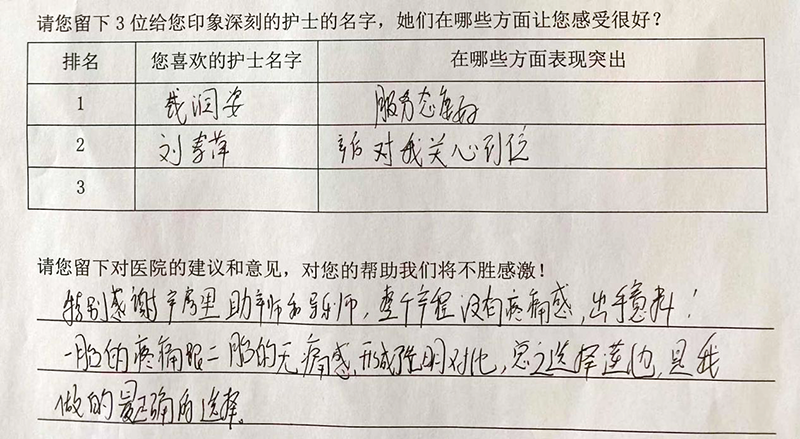 请您留下3位给您印象深刻的护士的名字，她们在哪些方面让您感受很好？
排名 您喜欢的护士名字 在哪些方面表现突出
1 润安 服务态度好
2 刘李萍 产后对我关心到位
3
请您留下对医院的建议和意见，对您的帮助我们将不胜感激！
特别感谢产房里助产师和导乐师，整个产程没有疼痛感，出乎意料！
一胎的疼痛跟二胎的无痛感，形成强明对比，总之选择莲池，是我
做的最正确的选择。